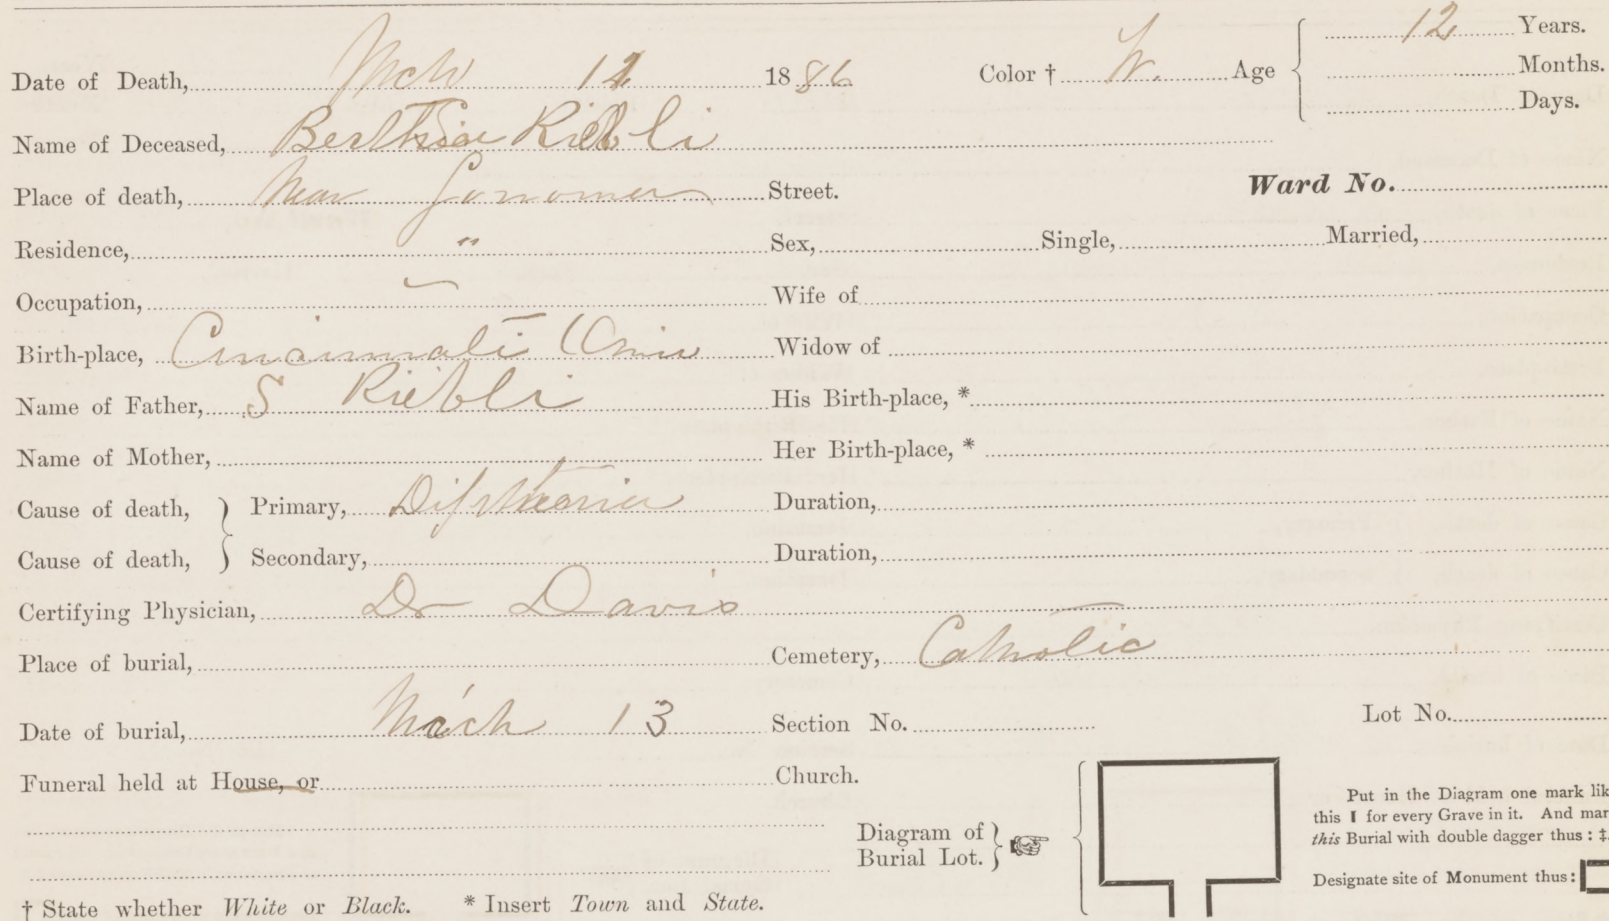 Date of Death, Mch 12 1886 Color † W. Age 12 Years.
Months.
Days.
Name of Deceased, Bertha Riebli
Place of death, Near Sonoma Street. Ward No.
Residence, " Sex, Single, Married,
Occupation, Wife of
Birth-place, Cincinnati Widow of
Name of Father, S Riebli His Birth-place, *
Name of Mother, Her Birth-place, *
Cause of death, } Primary, Diftheria Duration,
Cause of death, } Secondary, Duration,
Certifying Physician, Dr Davis
Place of burial, Cemetery, Catholic
Date of burial, March 13 Section No. Lot No.
Funeral held at House, or Church.
Diagram of
Burial Lot.
Put in the Diagram one mark lik
this I for every Grave in it. And mar
this Burial with double dagger thus : ‡
Designate site of Monument thus :
† State whether White or Black. * Insert Town and State.